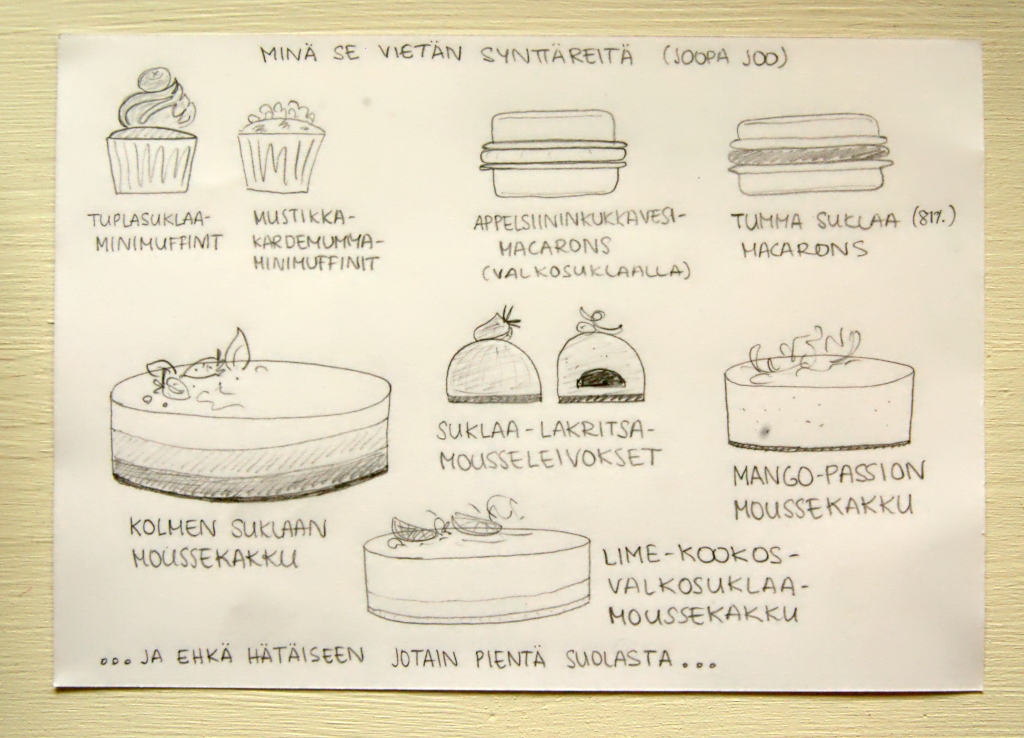 MINÄ SE VIETÄN SYNTTÄREITÄ (JOOPA JOO)
TUPLASUKLAA-
MINIMUFFINIT
MUSTIKKA-
KARDEMUMMA-
MINIMUFFINIT
APPELSIININKUKKAVESI-
MACARONS
(VALKOSUKLAALLA)
TUMMA SUKLAA (81%)
MACARONS
KOLMEN SUKLAAN
MOUSSEKAKKU
SUKLAA-LAKRITSA-
MOUSSELEIVOKSET
MANGO-PASSION
MOUSSEKAKKU
LIME-KOOKOS-
VALKOSUKLAA-
MOUSSEKAKKU
...JA EHKÄ HÄTÄISEEN JOTAIN PIENTÄ SUOLASTA...